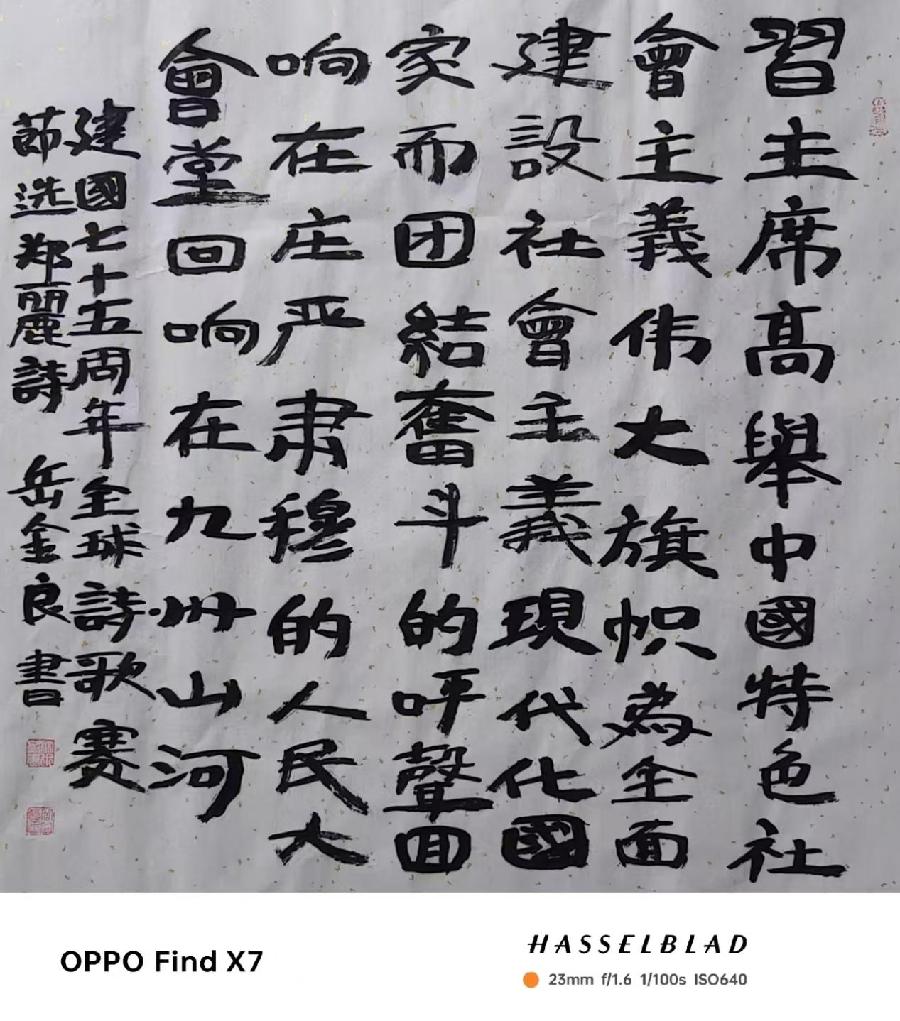 習主席高舉中國特色社
會主義伟大旗帜為全面
建設社會主義現代化國
家而团結奮斗的呼聲回
响在庄严肃穆的人民大
會堂回响在九州山河
建國七十五周年全球詩歌赛
節选郑麗詩 岳金良書
OPPO Find X7
HASSELBLAD
23mm f/1.6 1/100s ISO640